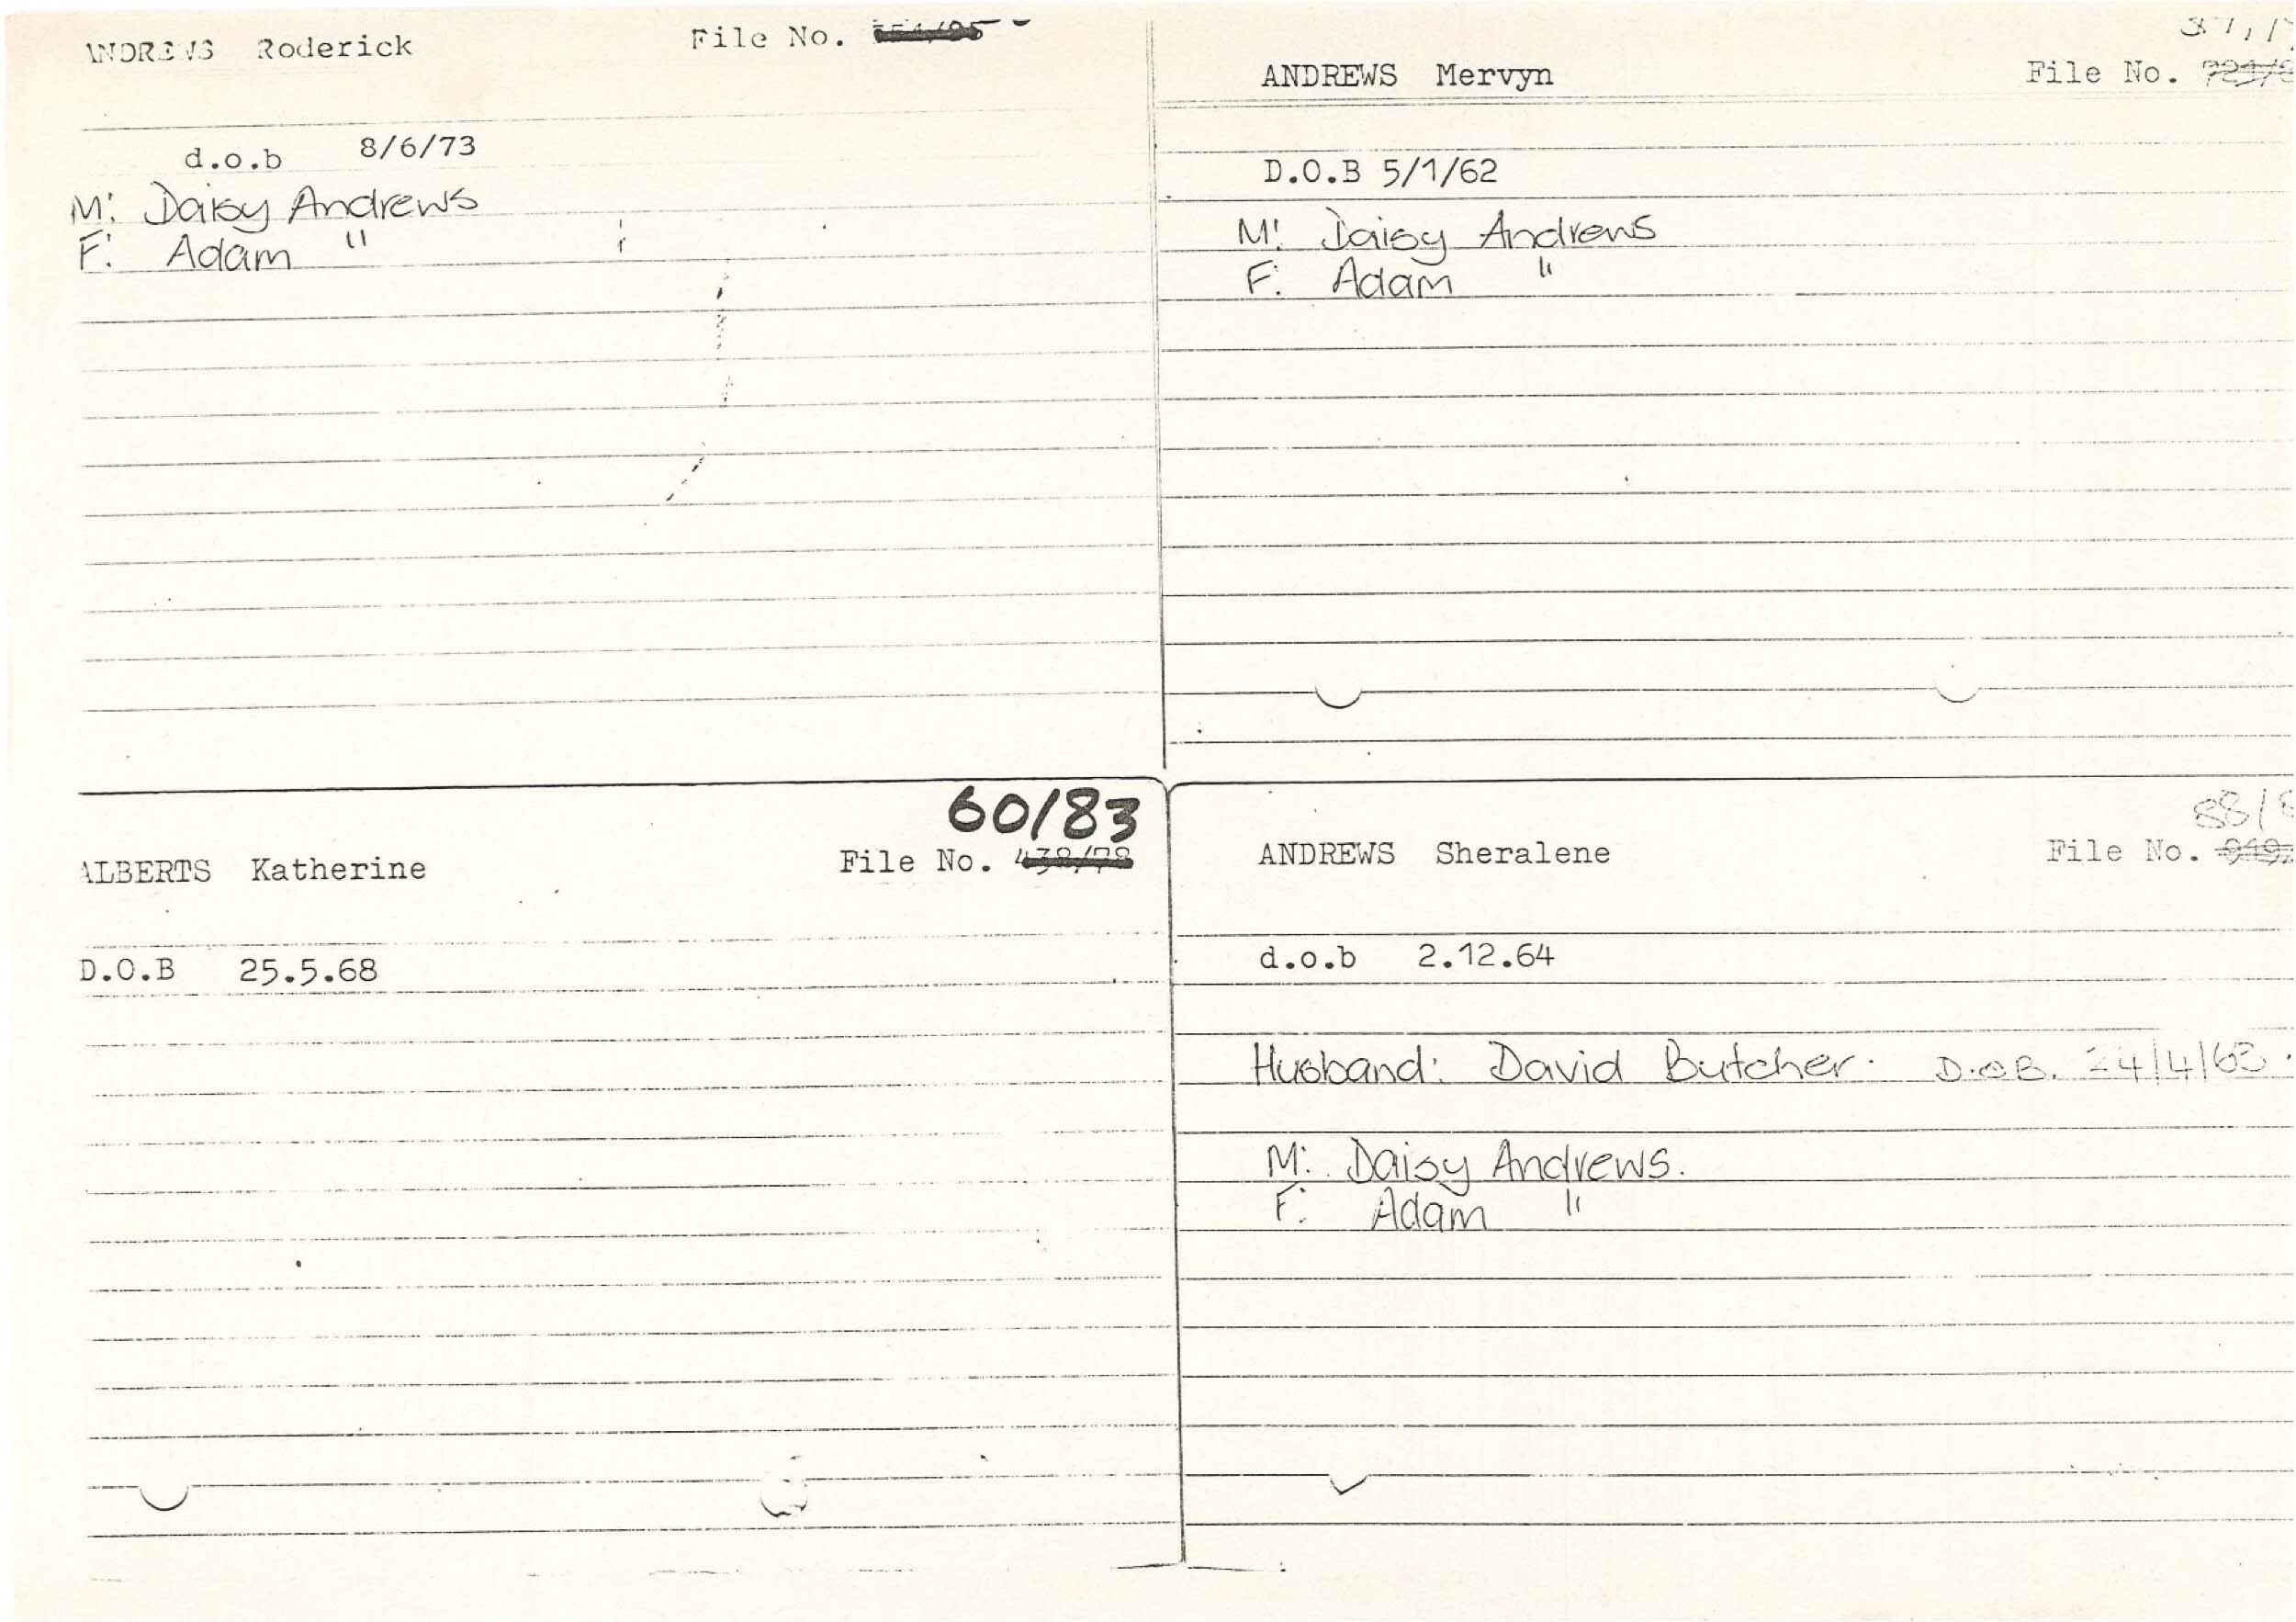 ANDREWS Roderick File No.
d.o.b 8/6/73
M: Daisy Andrews
F: Adam "
ANDREWS Mervyn File No.
D.O.B 5/1/62
M: Daisy Andrews
F: Adam "
60/83
ALBERTS Katherine File No. 438/78
D.O.B 25.5.68
88/8
ANDREWS Sheralene File No.
d.o.b 2.12.64
Husband: David Butcher. D.O.B. 24/4/63.
M: Daisy Andrews.
F: Adam "